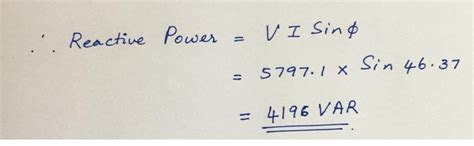 ∴ Reactive Power = V I Sinϕ
= 5797.1 x Sin 46.37
= 4196 VAR